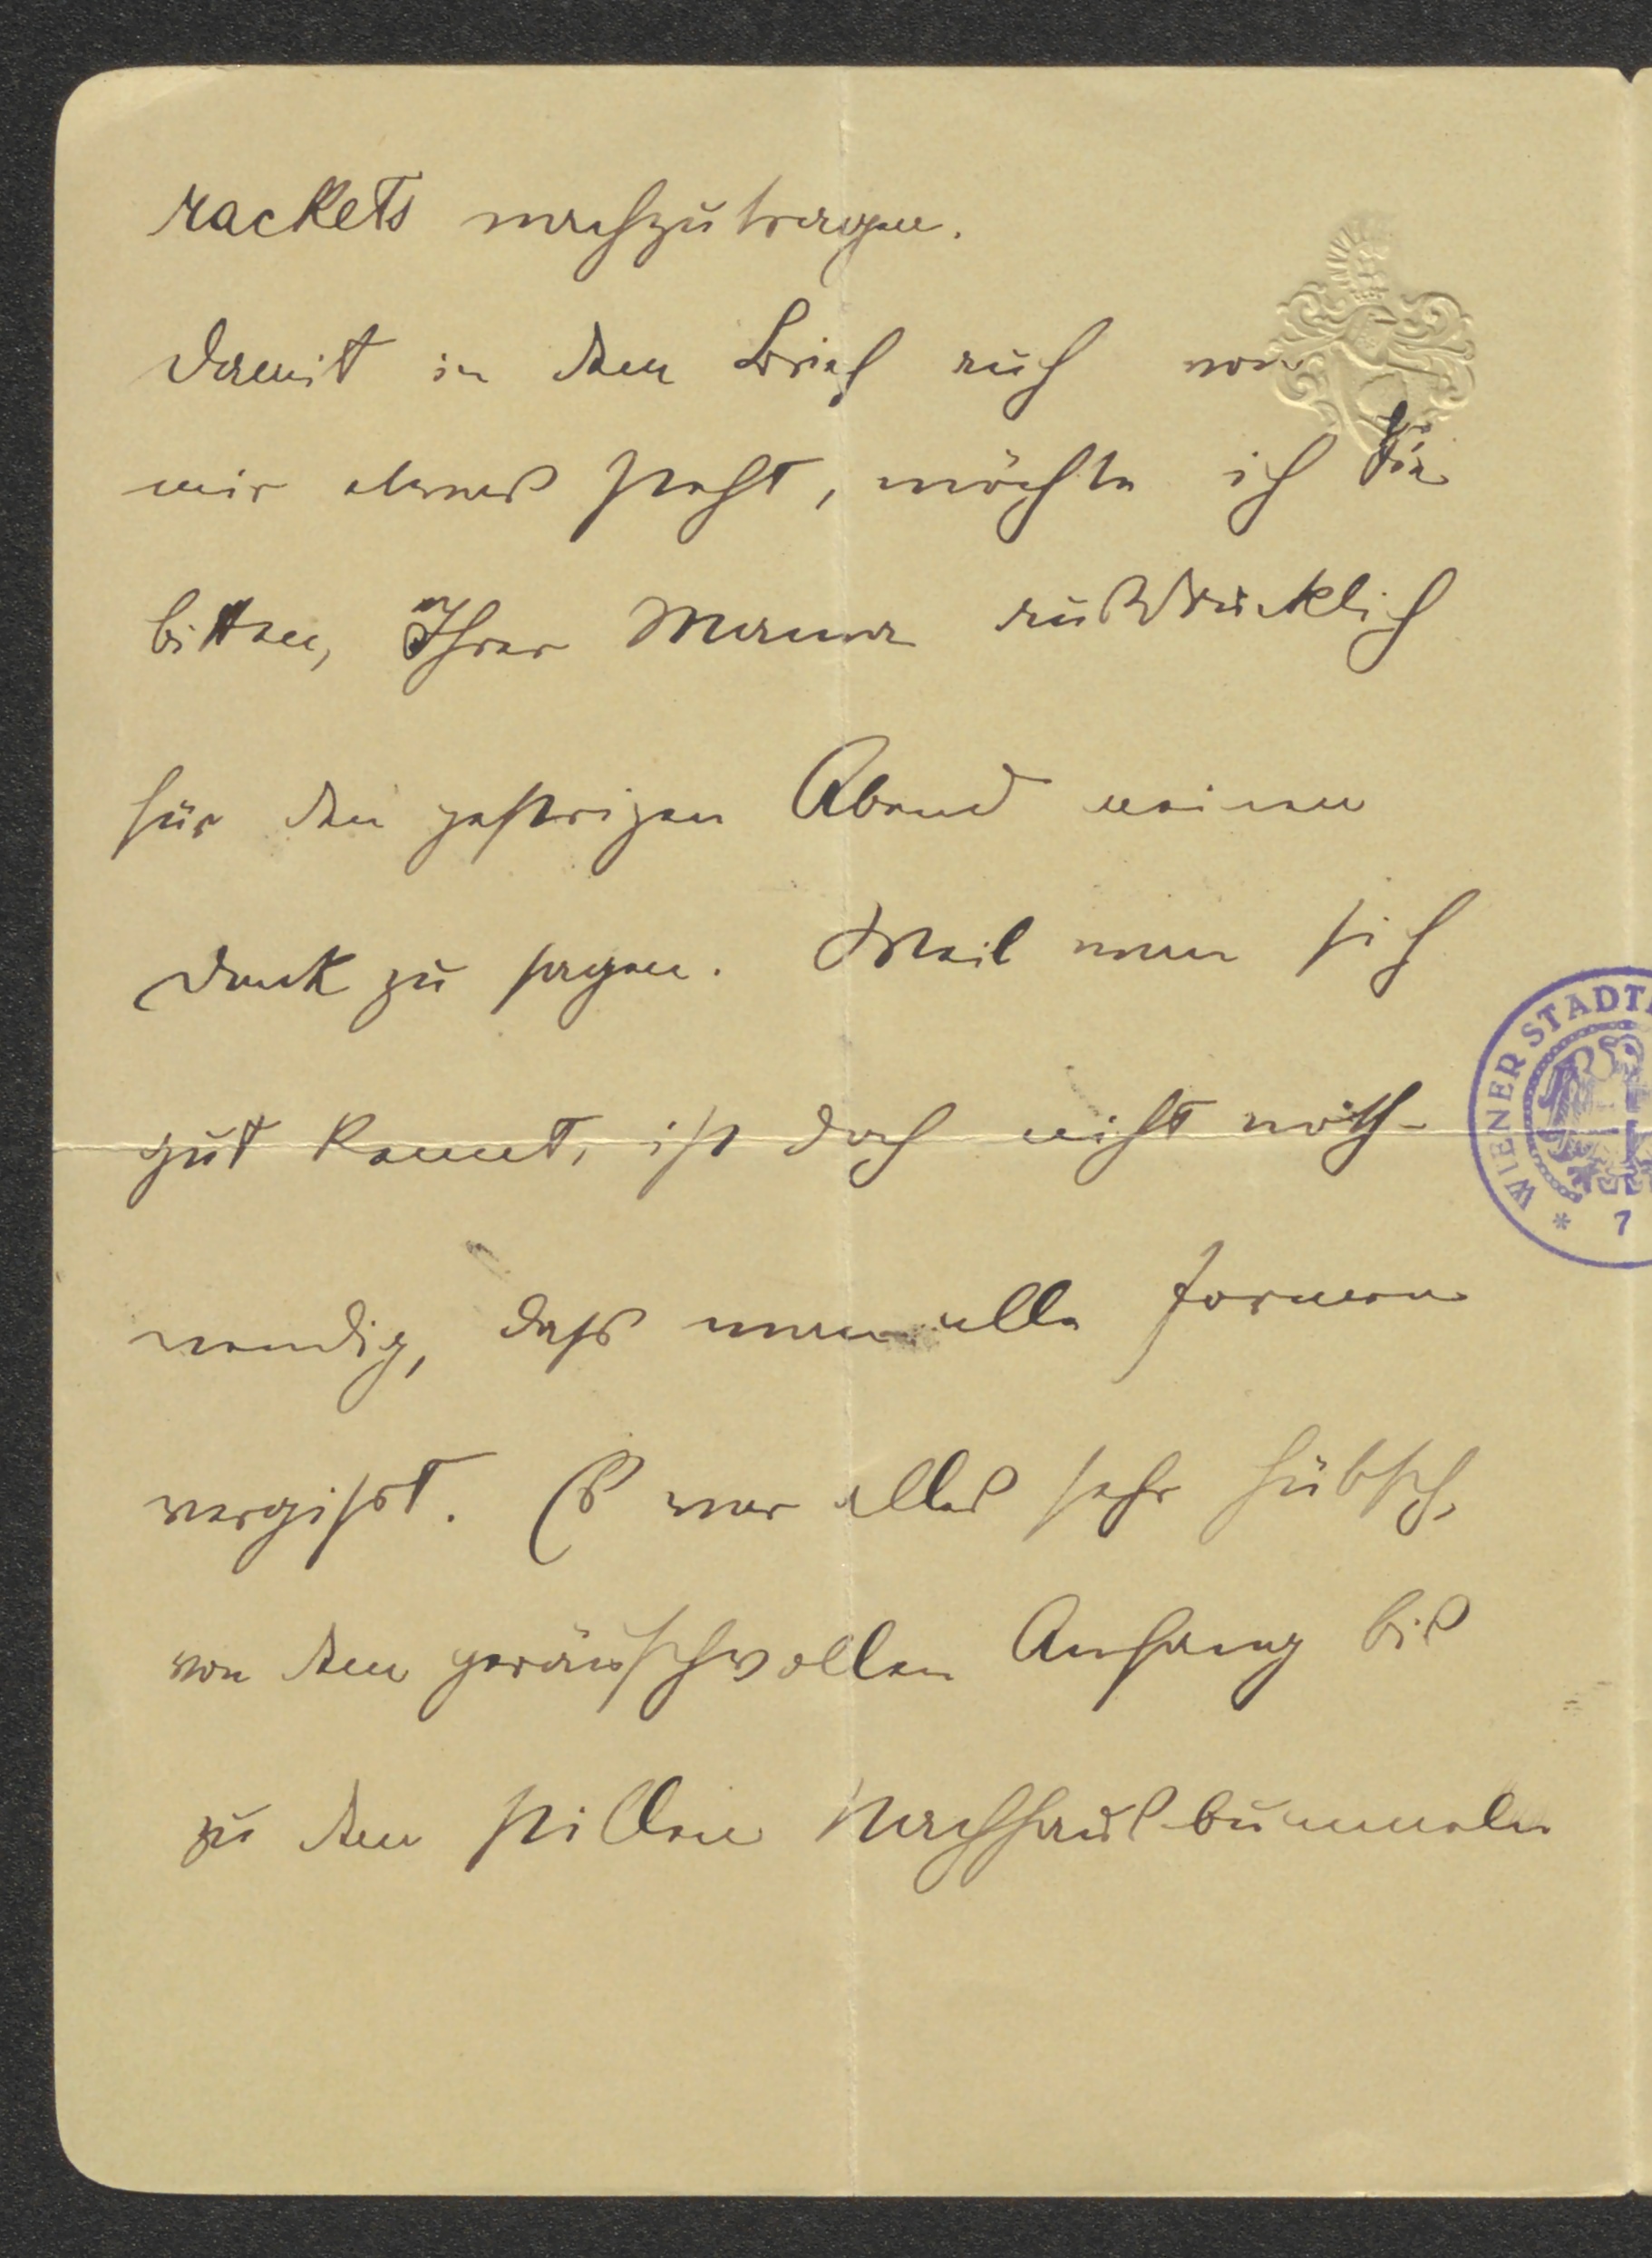 rackets nachzutragen.
Damit in dem Brief auch von
mir etwas steht, möchte ich Sie
bitten, Ihrer Mama ausdrücklich
für den gestrigen Abend meinen
Dank zu sagen. Weil man sich
gut kennt, ist doch nicht noth-
wendig, dass man alle Formen
vergisst. Es war alles sehr hübsch,
von dem geräuschvollen Anfang bis
zu dem stillen Nachhausbummeln
WIENER STADT
* 7